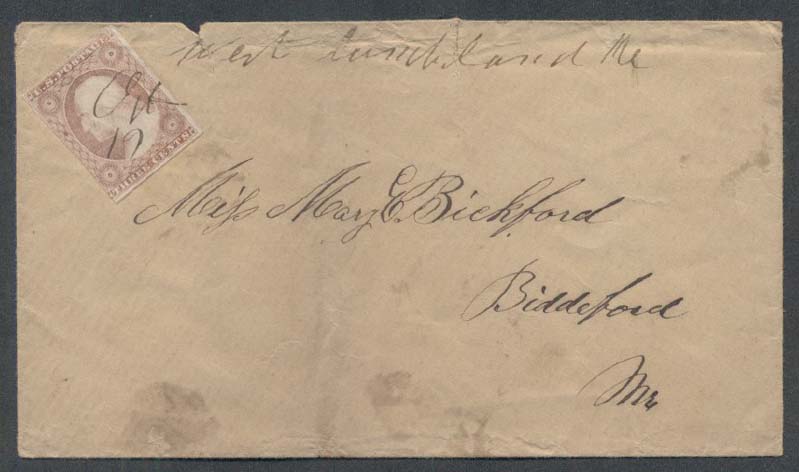 West Cumbland Me
U.S. POSTAGE
Oct
17
THREE CENTS
Miss Mary E. Bickford
Biddeford
Me